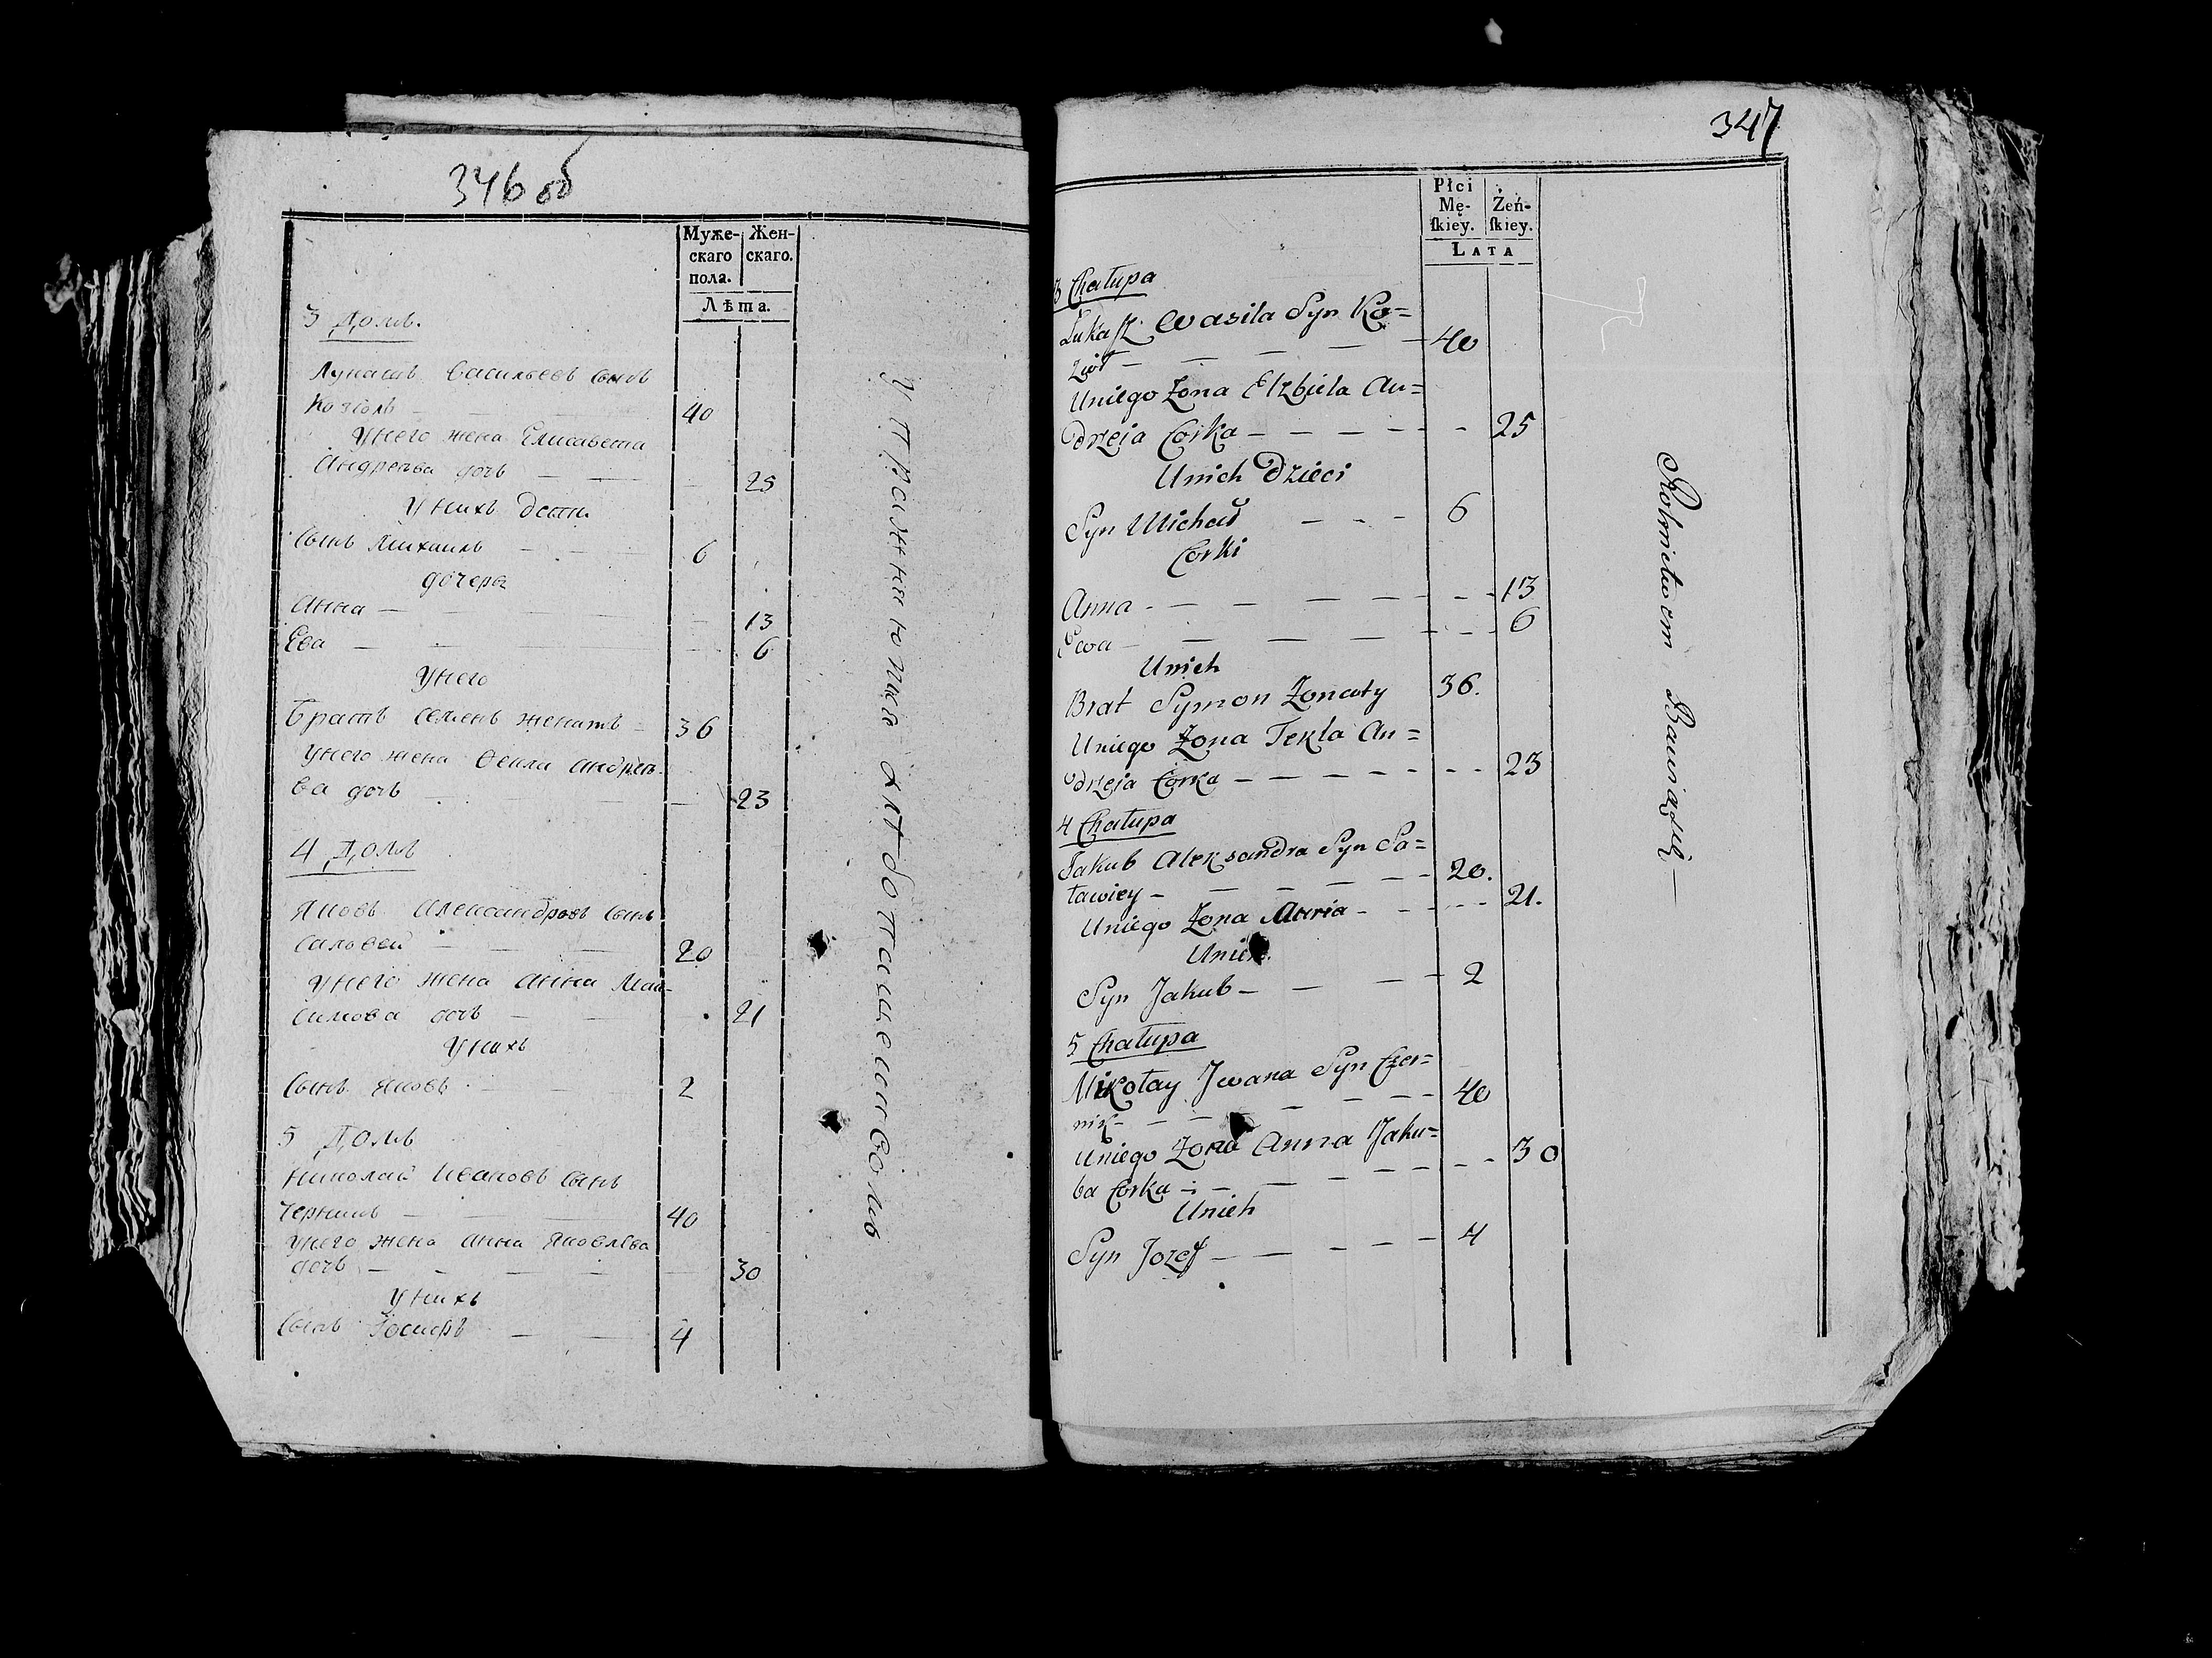 346 об
Муже-
скаго
пола.
Жен-
скаго.
Лѣта.
3 Домъ.
Лукашъ Васильевъ сынъ
Козіолъ 40
У него жена Елисавета
Андреева дочь 25
У нихъ дети
Сынъ Михаилъ 6
дочеры
Анна 13
Ева 6
У него
Братъ Семенъ женатъ 36
У него жена Ѳекла Андрее-
ва дочь 23
4 Домъ
Яковъ Александровъ сынъ
Салавей 20
У него жена Анна Мак-
симова дочь 21
У нихъ
Сынъ Яковъ 2
5 Домъ
Николай Ивановъ сынъ
Черникъ 40
У него жена Анна Яковлева
дочь 30
У нихъ
Сынъ Іосифъ 4
Упражняются хлебопашесвомъ
347
Płci
Mę-
ſkiey.
Żeń-
ſkiey.
LATA
3 Chałupa
Łukasz Wasila Syn Ko=
zioł 40
Uniego Żona Elzbieta An=
drzeia Corka 25
Unich Dzieci
Syn Michał 6
Corki
Anna 13
Ewa 6
Unich
Brat Symon Żonaty 36.
Uniego Żona Tekla An=
drzeja Corka 23
4 Chałupa
Jakub Alexsandra Syn Sa=
ławiey 20.
Uniego Żona Anna 21.
Unich
Syn Jakub 2
5 Chałupa
Mikołay Jwana Syn Czer=
nik 40
Uniego Żona Anna Jaku=
ba Corka 30
Unich
Syn Jozef 4
Rolnictwem Bawią się